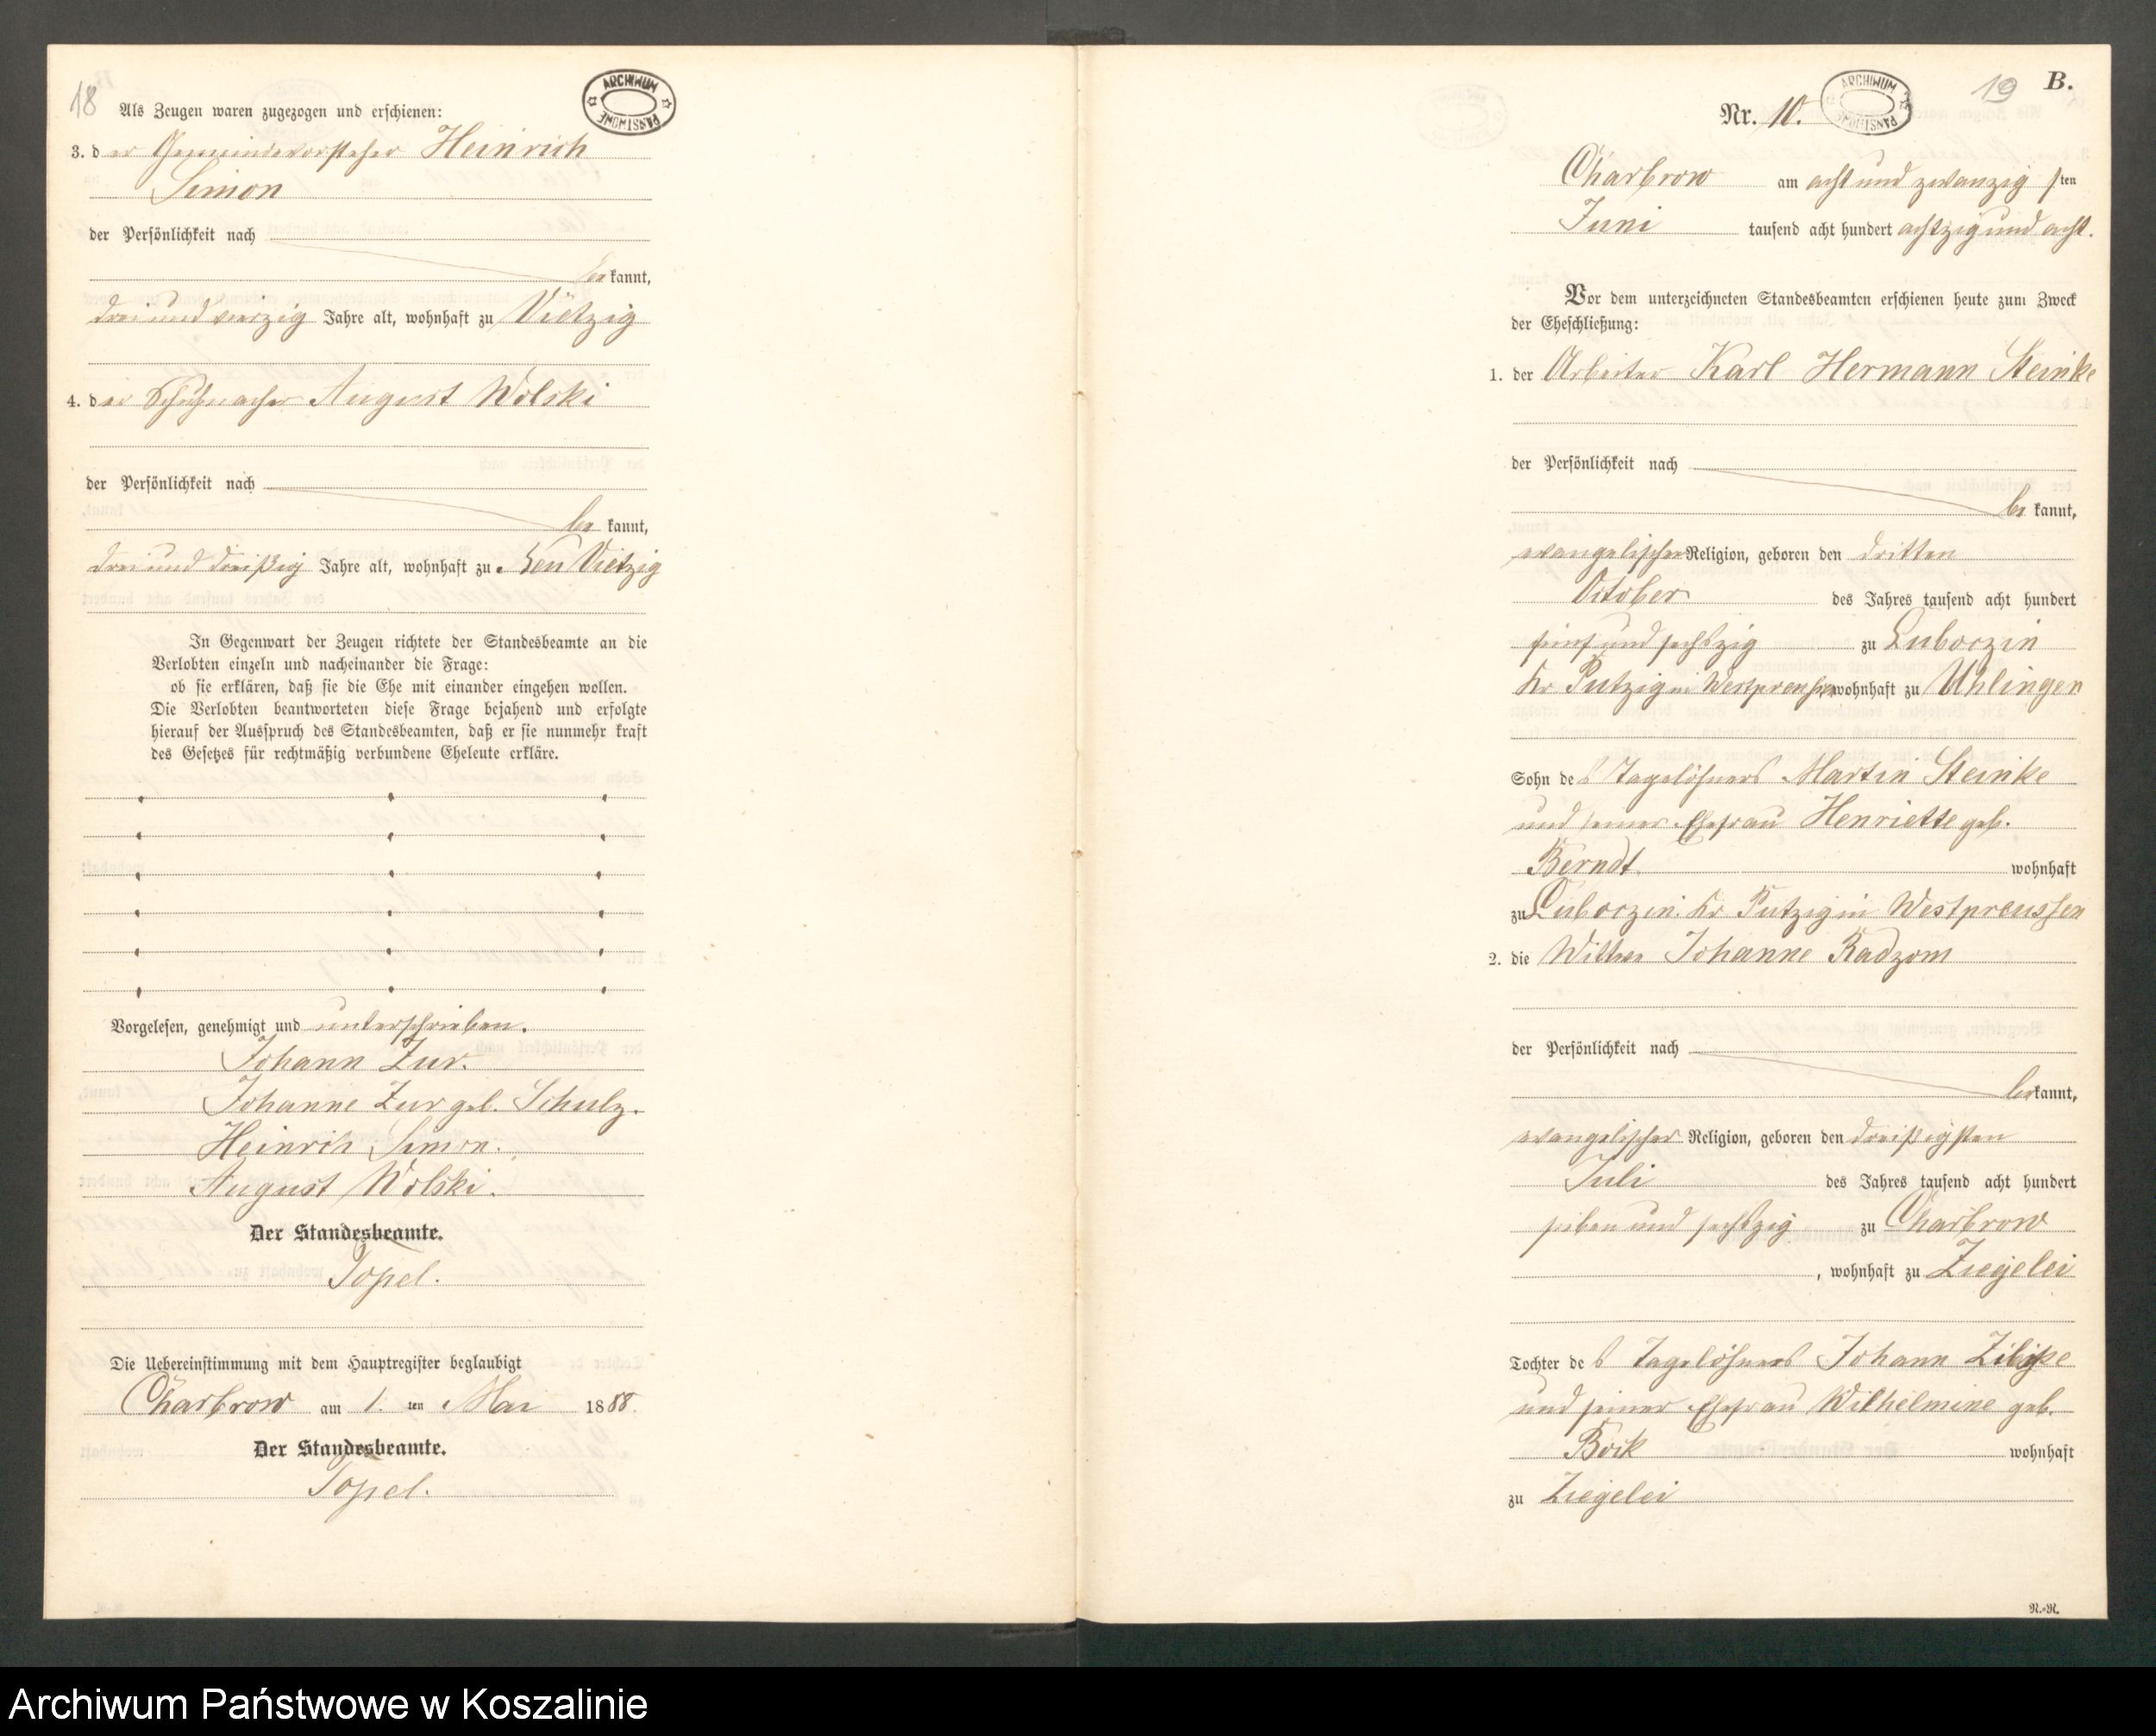 18
ARCHIWUM PAŃSTWOWE
Als Zeugen waren zugezogen und erschienen:
3. der Gemeindevorsteher Heinrich
Simon
der Persönlichkeit nach
be kannt,
drei und vierzig Jahre alt, wohnhaft zu Vietzig
4. der Schuhmacher August Wolski
der Persönlichkeit nach
be kannt,
drei und dreißig Jahre alt, wohnhaft zu Neu Vietzig
In Gegenwart der Zeugen richtete der Standesbeamte an die
Verlobten einzeln und nacheinander die Frage:
ob sie erklären, daß sie die Ehe mit einander eingehen wollen.
Die Verlobten beantworteten diese Frage bejahend und erfolgte
hierauf der Ausspruch des Standesbeamten, daß er sie nunmehr kraft
des Gesetzes für rechtmäßig verbundene Eheleute erkläre.
Vorgelesen, genehmigt und unterschrieben.
Johann Zur.
Johanne Zur geb. Schulz.
Heinrich Simon.
August Wolski.
Der Standesbeamte.
Topel.
Die Uebereinstimmung mit dem Hauptregister beglaubigt
Charbrow am 1. ten Mai 1888.
Der Standesbeamte.
Topel.
19
B.
ARCHIWUM PAŃSTWOWE
Nr. 10.
Charbrow am acht und zwanzig sten
Juni tausend acht hundert achtzig und acht.
Vor dem unterzeichneten Standesbeamten erschienen heute zum Zweck
der Eheschließung:
1. der Arbeiter Karl Hermann Steinke
der Persönlichkeit nach
be kannt,
evangelischer Religion, geboren den dritten
October des Jahres tausend acht hundert
fünf und sechszig zu Luboczin
Kr Putzig in Westpreussen wohnhaft zu Uhlingen
Sohn des Tagelöhners Martin Steinke
und seiner Ehefrau Henriette geb.
Berndt wohnhaft
zu Luboczin Kr Putzig in Westpreussen
2. die Witwe Johanne Radzom
der Persönlichkeit nach
bekannt,
evangelischer Religion, geboren den dreißigsten
Juli des Jahres tausend acht hundert
sieben und sechszig zu Charbrow
, wohnhaft zu Ziegelei
Tochter des Tagelöhners Johann
und seiner Ehefrau Wilhelmine geb.
Bock wohnhaft
zu Ziegelei
R.-R.
Archiwum Państwowe w Koszalinie